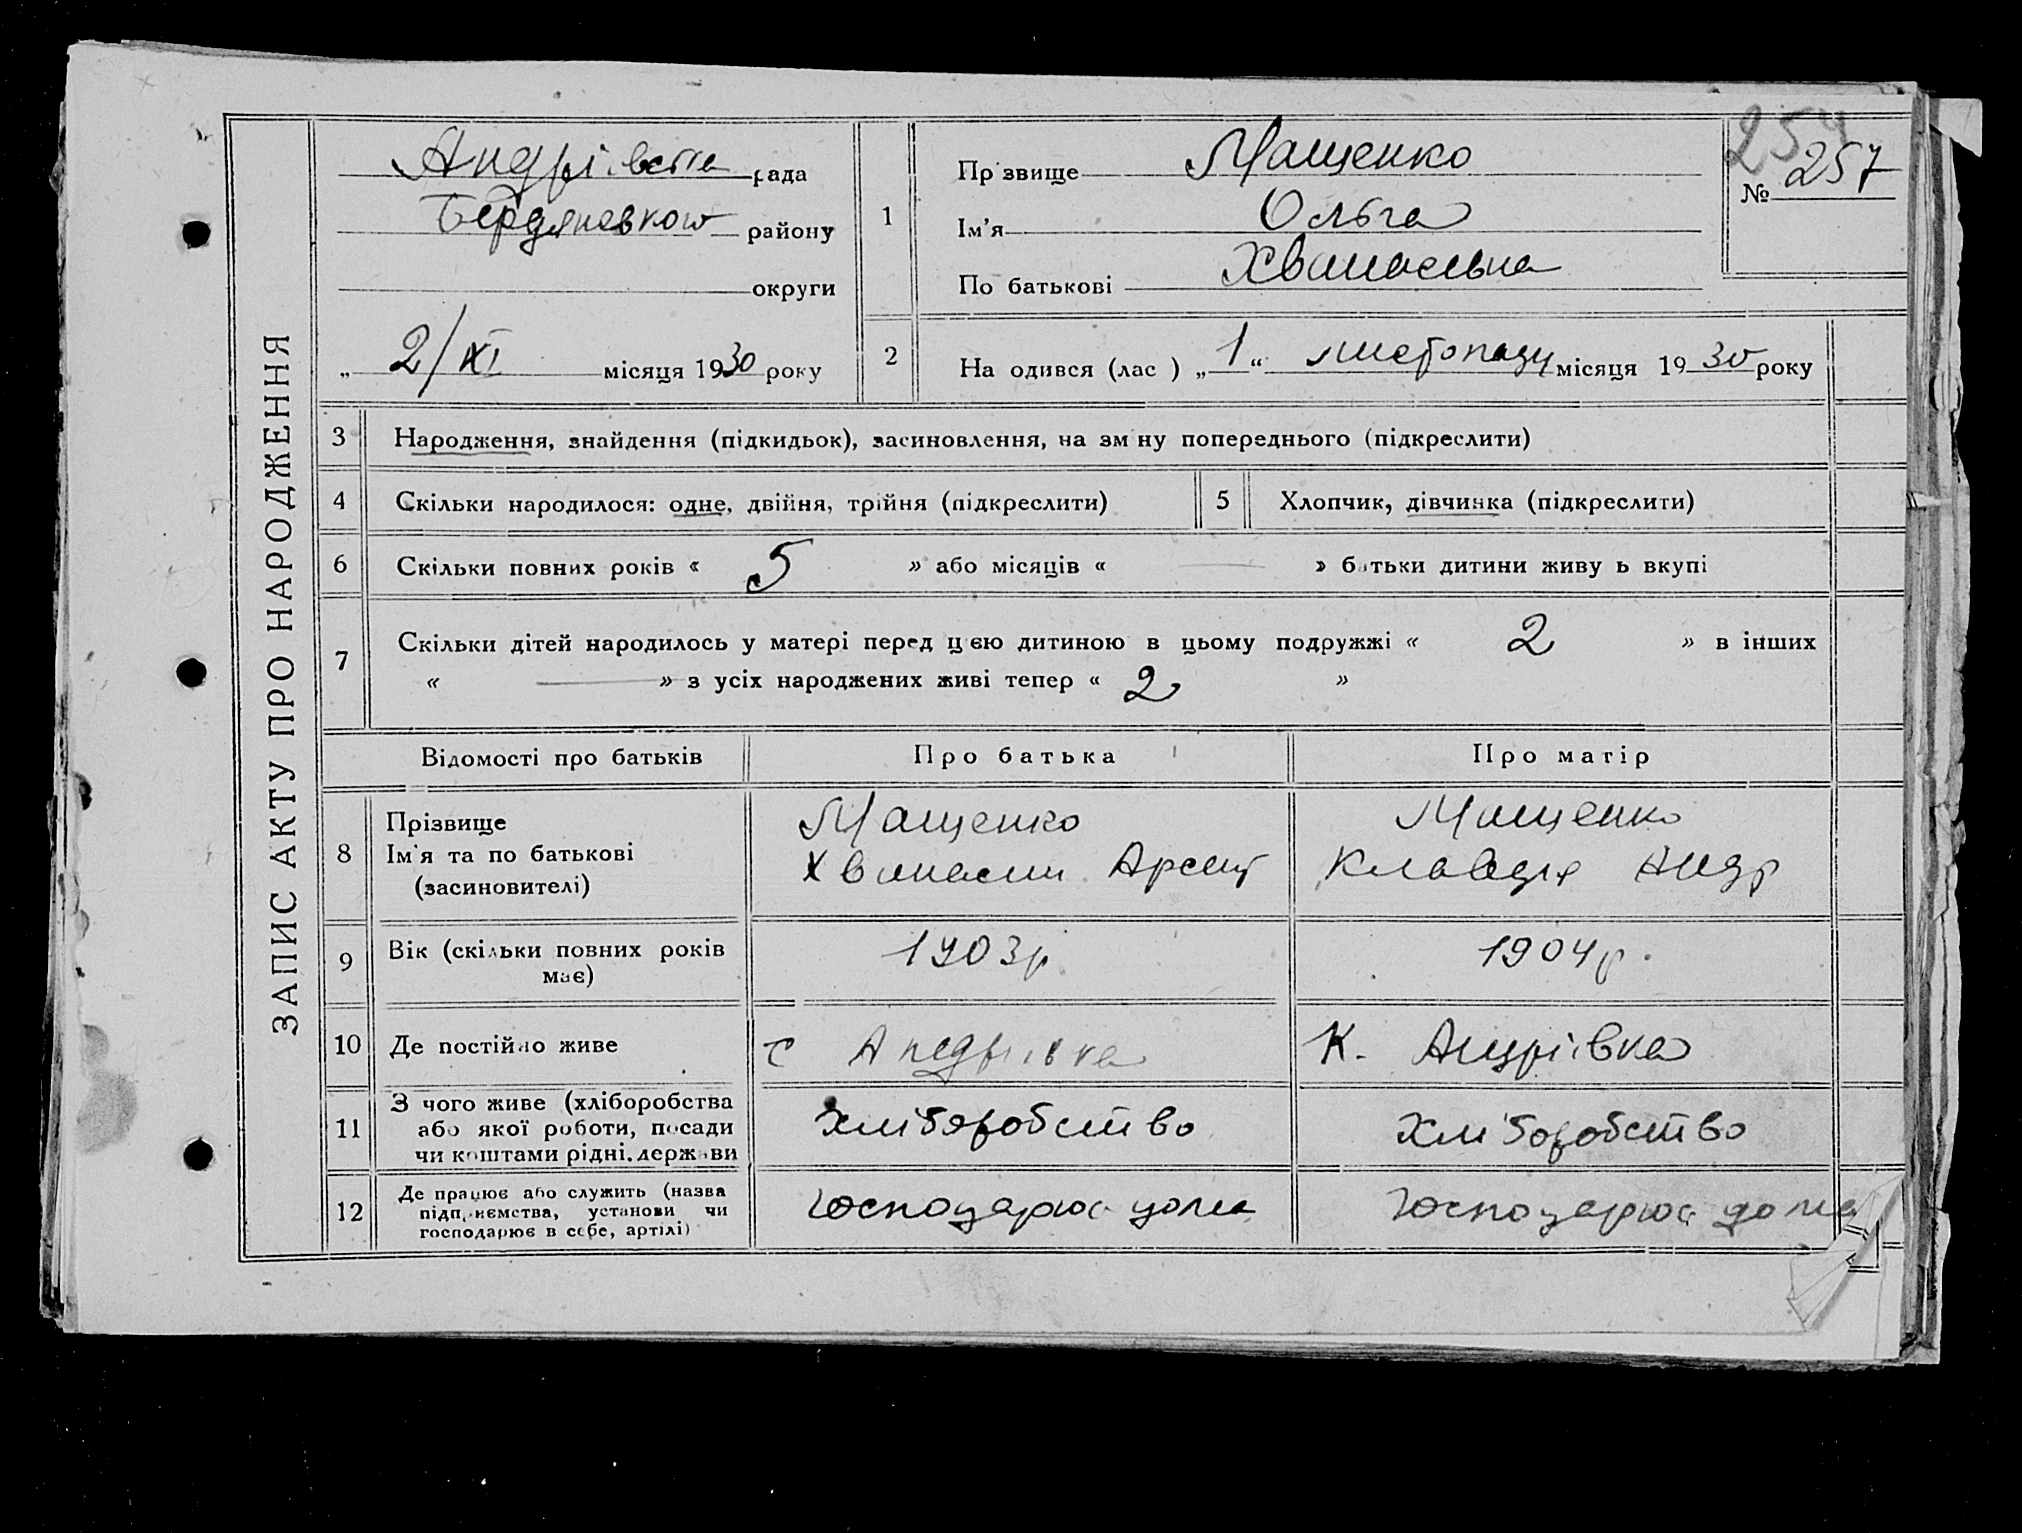 ЗАПИС АКТУ ПРО НАРОДЖЕННЯ
Андріівська рада
Бердянського району
округи
„ 2/XI місяця 1930 року
1
Прізвище Мащенко
Ім'я Ольга
По батькові Хванасівна
254
№ 257
2 На одився (лас ) „ 1 “ листопаду місяця 1930 року
3 Народження, знайдення (підкидьок), засиновлення, на зм ну попереднього (підкреслити)
4 Скільки народилося: одне, двійня, трійня (підкреслити)
5 Хлопчик, дівчинка (підкреслити)
6 Скільки повних років « 5 » або місяців « — » батьки дитини живу ь вкупі
7 Скільки дітей народилось у матері перед цією дитиною в цьому подружжі « 2 » в інших
« — » з усіх народжених живі тепер « 2 »
Відомості про батьків
Про батька
Про матір
8 Прізвище
Ім'я та по батькові
(засиновителі)
Мащенко
Хванасии Арсент
Мащенко
Клавдія Андр
9 Вік (скільки повних років
має)
1903р
1904р.
10 Де постійно живе
с Андріівка
К. Андріівка
11 З чого живе (хліборобства
або якої роботи, посади
чи коштами рідні.держави
хліборобство
хліборобство
12 Де працює або служить (назва
підприємства, установи чи
господарює в себе, артілі)
господарює дома
господарює дома